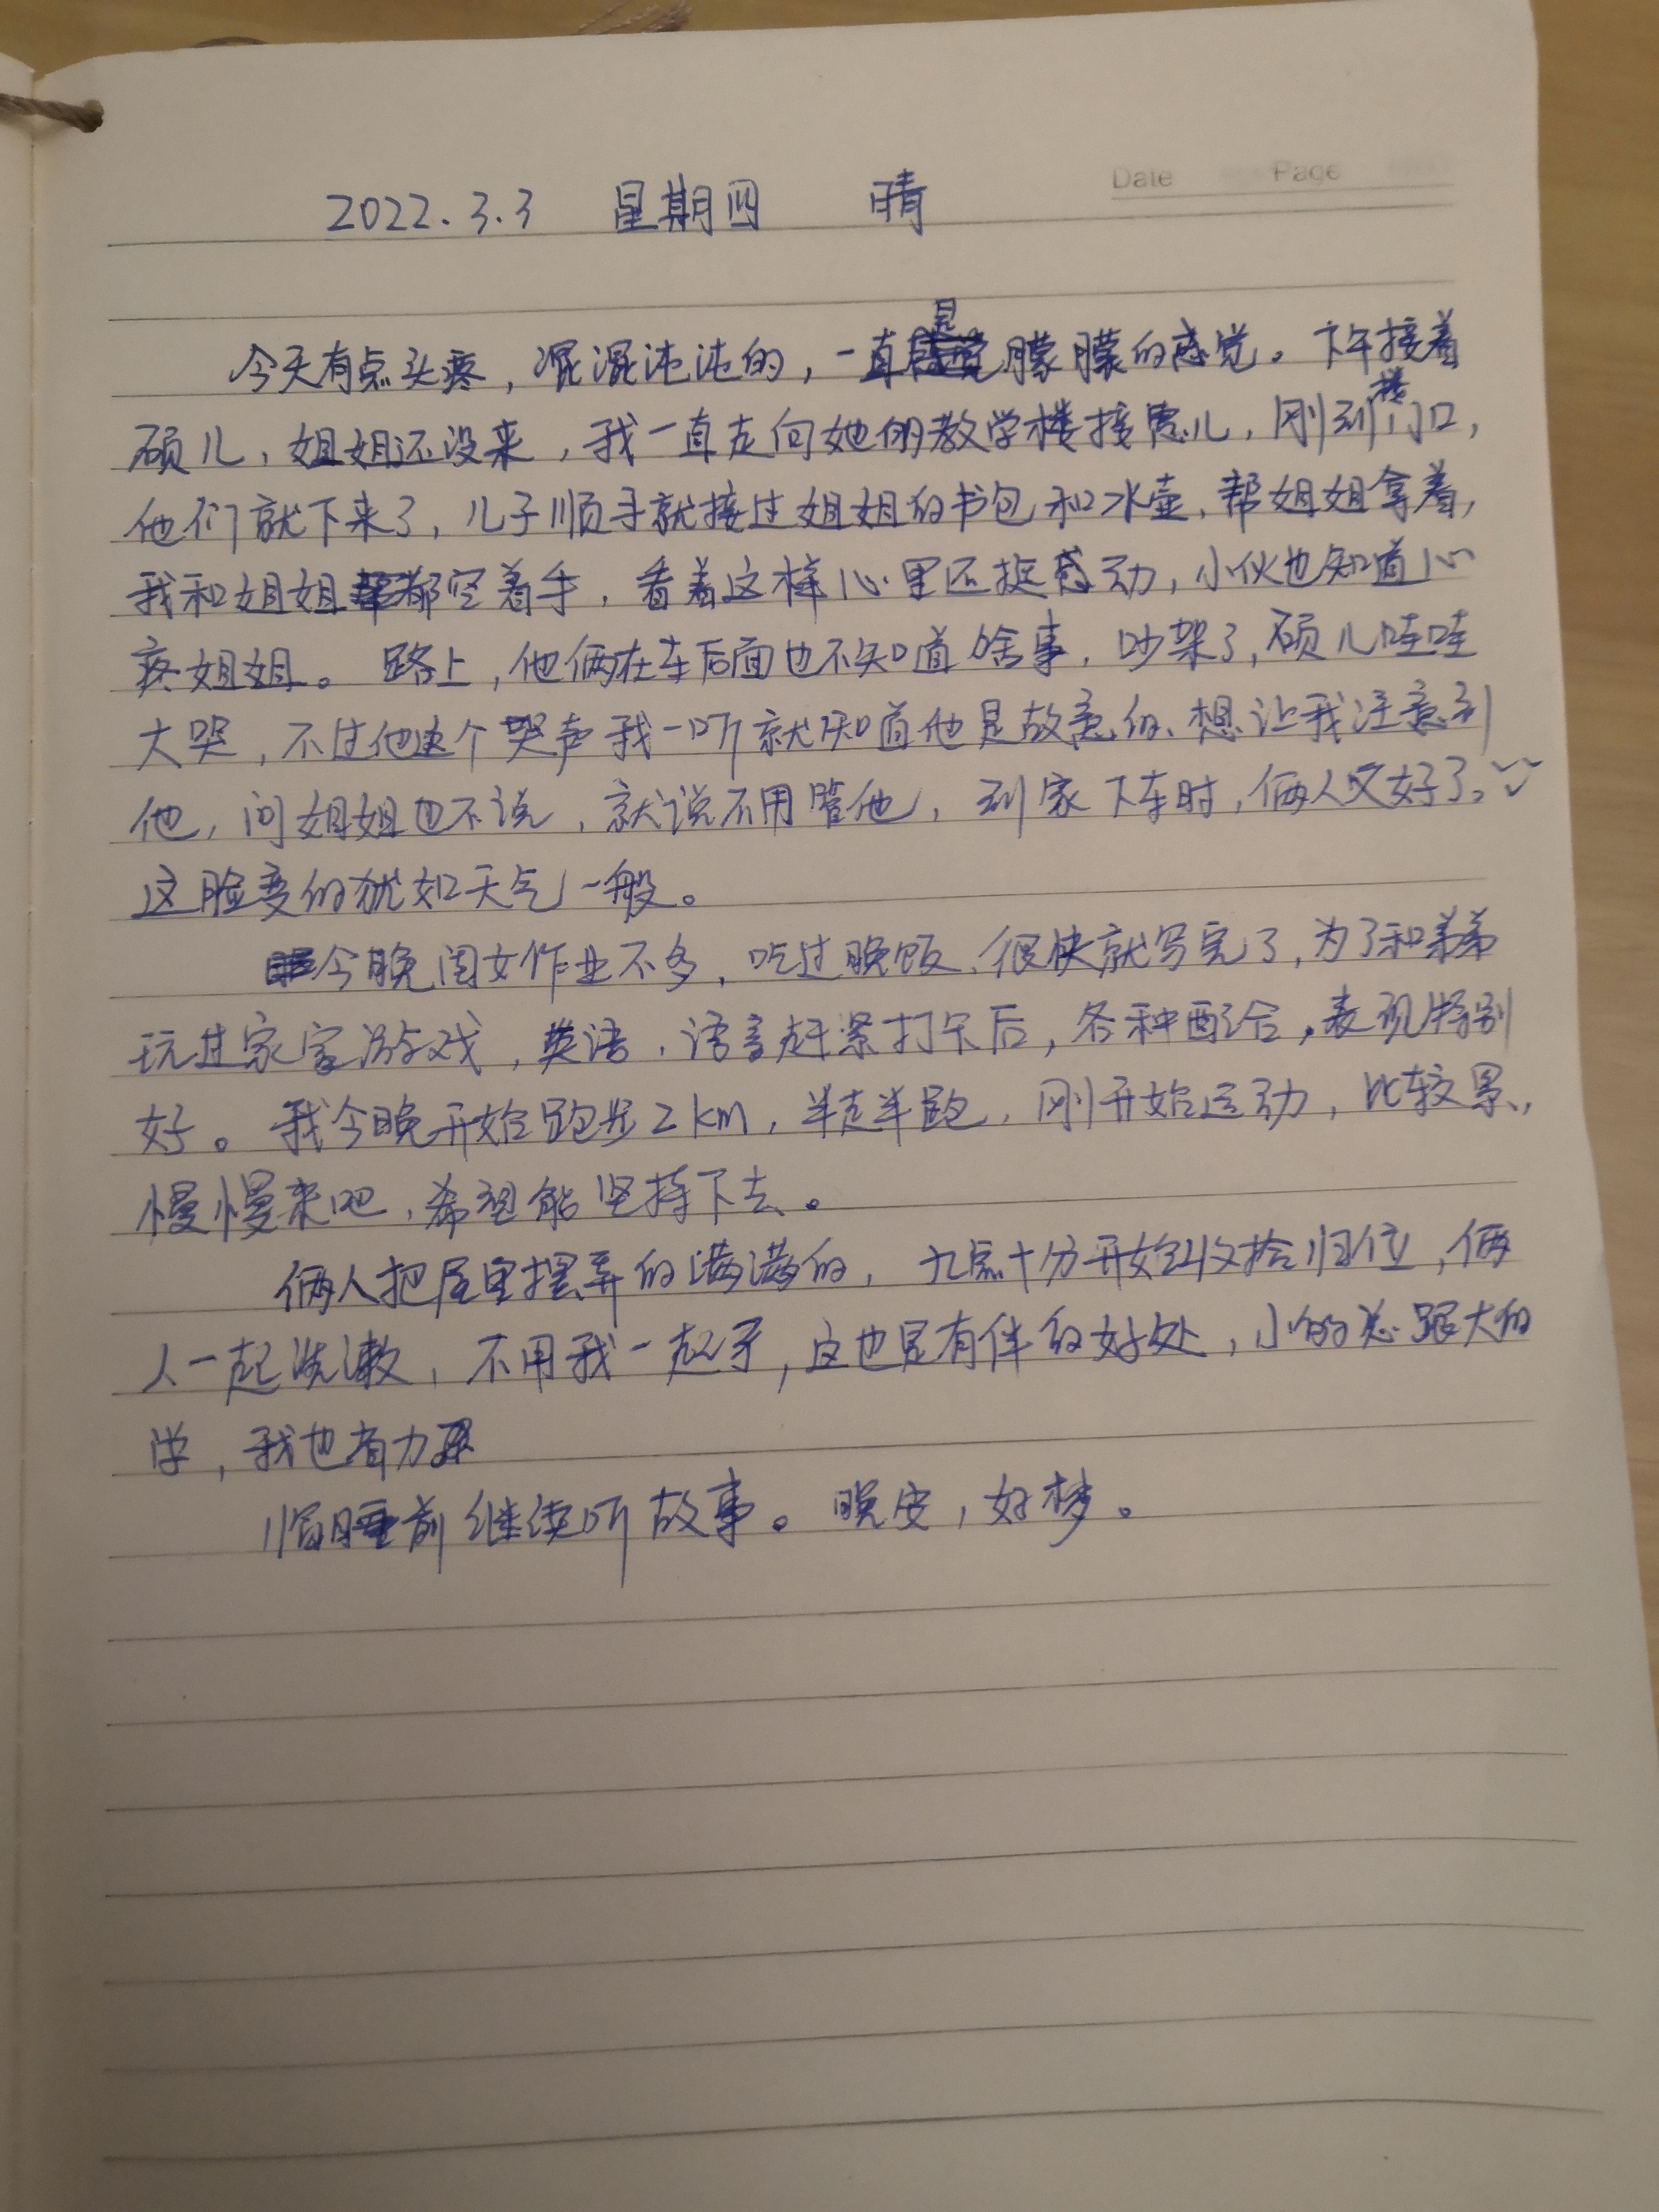 Date Page
2022.3.3 星期四 晴
今天有点头疼，混混沌沌的，一直是朦朦的感觉。下午接着
硕儿，姐姐还没来，我一直走向她的教学楼接惠儿，刚到楼门口，
他们就下来了，儿子顺手就接过姐姐的书包和水壶，帮姐姐拿着，
我和姐姐都空着手，看着这样心里还挺感动，小伙也知道心
疼姐姐。路上，他俩在车后面也不知道啥事，吵架了，硕儿哇哇
大哭，不过他这个哭声我一听就知道他是故意的、想让我注意到
他，问姐姐也不说，就说不用管他，到家下车时，俩人又好了。
这脸变的犹如天气一般。
今晚闺女作业不多，吃过晚饭、很快就写完了，为了和弟弟
玩过家家游戏，英语、语音赶紧打卡后，各种配合，表现特别
好。我今晚开始跑步2km，半走半跑，刚开始运动，比较累，
慢慢来吧，希望能坚持下去。
俩人把屋里摆弄的满满的，九点十分开始收拾归位，俩
人一起洗漱，不用我一起了，这也是有伴的好处，小的总跟大的
学，我也省力
临睡前继续听故事。晚安，好梦。